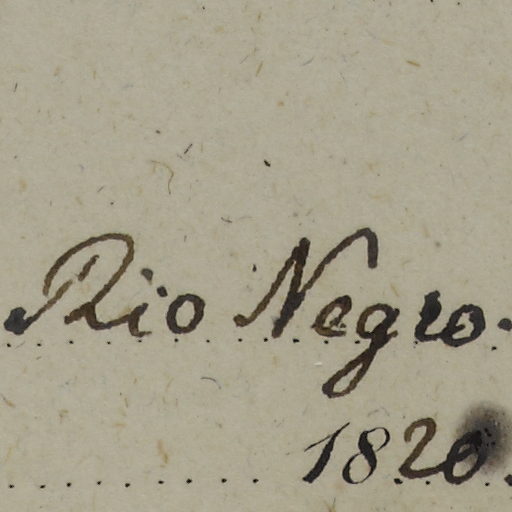 Rio Negro.
1820.